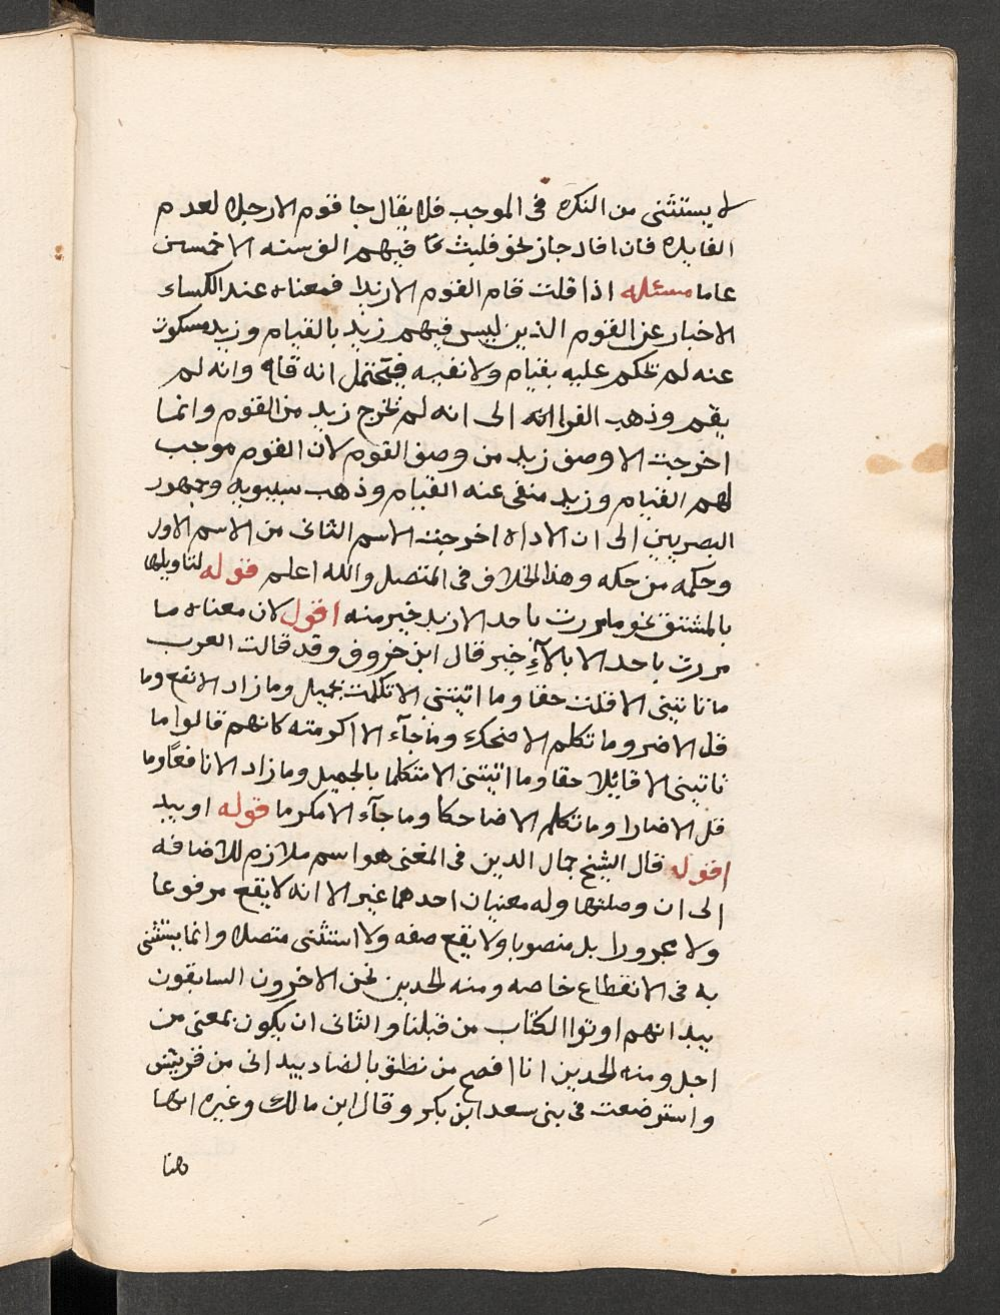 لا يستثنى من النكره فى الموجب فلا يقال جا قوم الا رجلا لعدم
الفايده فان افاد جاز نحو فلبث فيهم الف سنه الا خمسين
عاما مسئله اذا قلت قام القوم الا زيدا فمعناه عند الكساء
الاخبار عن القوم الذين ليس فيهم زيد بالقيام وزيد مسكوت
عنه لم تحكم عليه بقيام ولا نفيه فيحتمل انه قام وانه لم
يقم وذهب الفرا الى انه لم تخرج زيد من القوم وانما
اخرجت الا وصف زيد من وصف القوم لان القوم موجب
لهم القيام وزيد منفى عنه القيام وذهب سيبويه وجمهور
البصريين الى ان الاداه اخرجت الاسم الثانى من الاسم الاول
وحكمه من حكمه وهذا الخلاف فى المتصل والله اعلم قوله لتاويلها
بالمشتق نحو ما مررت باحد الا زيد خير منه اقول لان معناه ما
مررت باحد الا خير قال ابن خروف وقد قالت العرب
ما تاتينى الا قلت حقا وما اتيتنى الا تكلمت بجميل وما زاد الا نفع وما
قل الا ضر وما تكلم الا ضحك وما جآء الا اكرمته كانهم قالوا ما
تاتينى الا قايلا حقا وما اتيتنى الا متكلما بالجميل وما زاد الا نافعًا وما
قل الا ضارا وما تكلم الا ضاحكا وما جآء الا مكرما قوله او بيد
اقول قال الشيخ جمال الدين فى المغنى هو اسم ملازم للاضافه
الى ان وصلتها وله معنيان احدهما غير الا انه لا يقع مرفوعا
ولا مجرورا بل منصوبا ولا يقع صفه ولا استثنى متصلا وانما يستثنى
به فى الانقطاع خاصه ومنه الحديث نحن الاخرون السابقون
بيد انهم اوتوا الكتاب من قبلنا والثانى ان يكون بمعنى من
اجل ومنه الحديث انا افصح من نطق بالضاد بيد انى من قريش
واسترضعت فى بنى سعد ابن بكر وقال ابن مالك وغيره انها
هنا